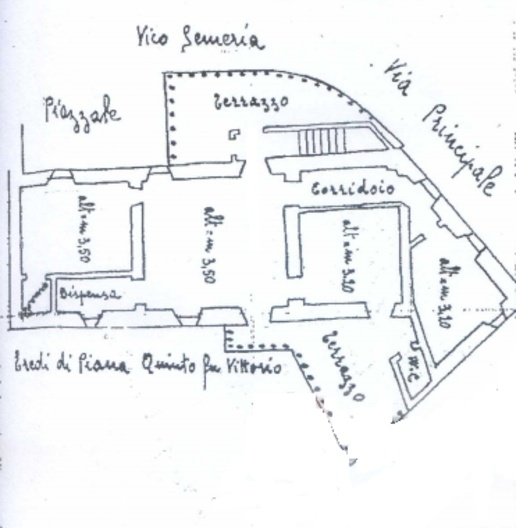 Vico Semeria
Piazzale
Terrazzo
Via Principale
Corridoio
alt=m 3,50
alt=m 3,50
alt=m 3,20
alt=m 3,20
Dispensa
Eredi di Piana Quinto fu Vittorio
Terrazzo
W.C.